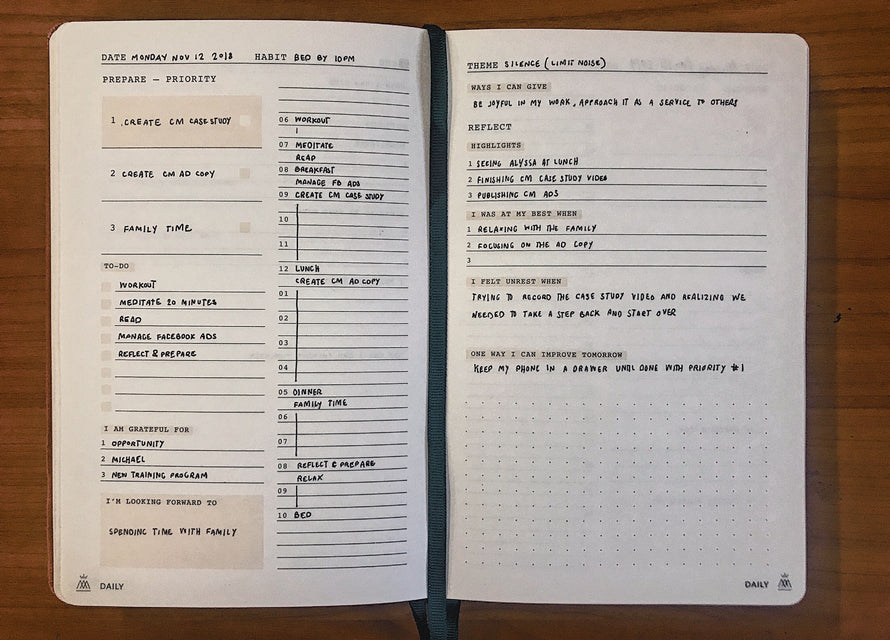 DATE MONDAY NOV 12 2018 HABIT BED BY 10PM
PREPARE — PRIORITY
1 CREATE CM CASE STUDY
2 CREATE CM AD COPY
3 FAMILY TIME
TO-DO
WORKOUT
MEDITATE 20 MINUTES
READ
MANAGE FACEBOOK ADS
REFLECT & PREPARE
I AM GRATEFUL FOR
1 OPPORTUNITY
2 MICHAEL
3 NEW TRAINING PROGRAM
I'M LOOKING FORWARD TO
SPENDING TIME WITH FAMILY
DAILY
06 WORKOUT
07 MEDITATE
READ
08 BREAKFAST
MANAGE FB ADS
09 CREATE CM CASE STUDY
10
11
12 LUNCH
CREATE CM AD COPY
01
02
03
04
05 DINNER
FAMILY TIME
06
07
08 REFLECT & PREPARE
RELAX
09
10 BED
THEME SILENCE (LIMIT NOISE)
WAYS I CAN GIVE
BE JOYFUL IN MY WORK, APPROACH IT AS A SERVICE TO OTHERS
REFLECT
HIGHLIGHTS
1 SEEING ALYSSA AT LUNCH
2 FINISHING CM CASE STUDY VIDEO
3 PUBLISHING CM ADS
I WAS AT MY BEST WHEN
1 RELAXING WITH THE FAMILY
2 FOCUSING ON THE AD COPY
3
I FELT UNREST WHEN
TRYING TO RECORD THE CASE STUDY VIDEO AND REALIZING WE
NEEDED TO TAKE A STEP BACK AND START OVER
ONE WAY I CAN IMPROVE TOMORROW
KEEP MY PHONE IN A DRAWER UNTIL DONE WITH PRIORITY #1
DAILY